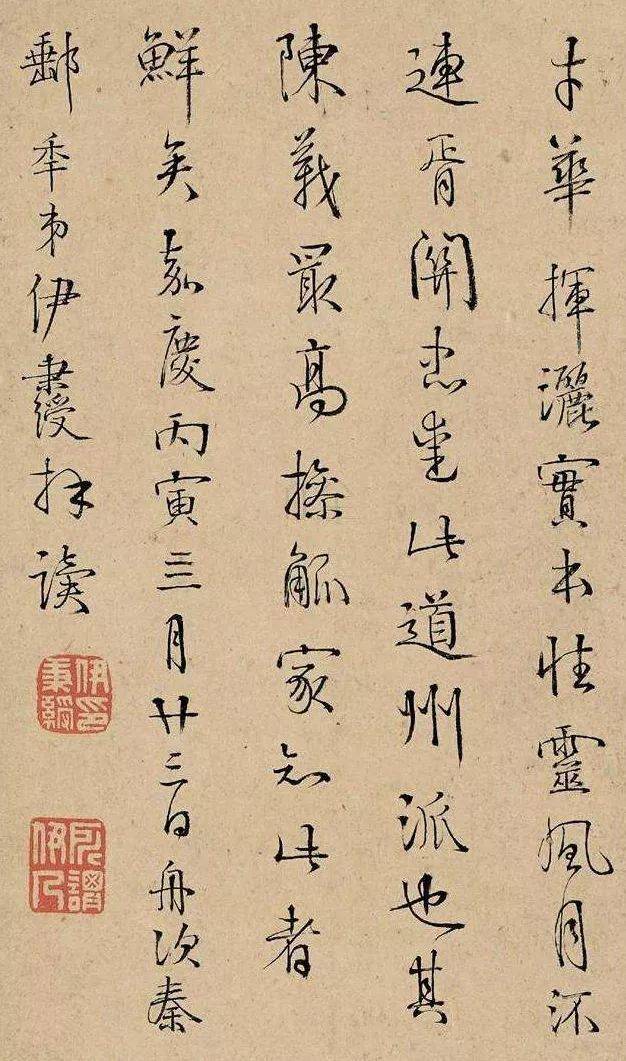 才華揮灑實本性靈風月沠
連胥關忠愛此道州派也其
陳義最高操觚家知此者
鮮矣嘉慶丙寅三月廿三日舟次秦
郵年弟伊秉綬拜讀
伊印秉綬